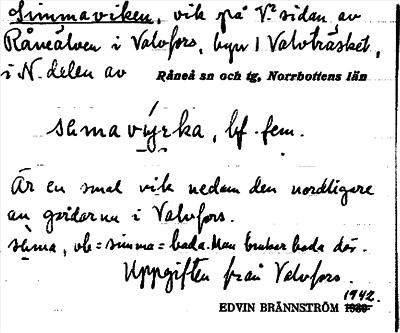 Simmaviken, vik på V. sidan av
Råneälven i Valvfors, byn Valvträsket,
i N. delen av Råneå sn och tg, Norrbottens län
sämavýrka, bf. fem.
Är en smal vik nedom den nordligare
av gårdarna i Valvfors.
säma, vb = simma = bada. Man brukar bada där.
Uppgiften från Valvfors.
1942.
EDVIN BRÄNNSTRÖM 1939